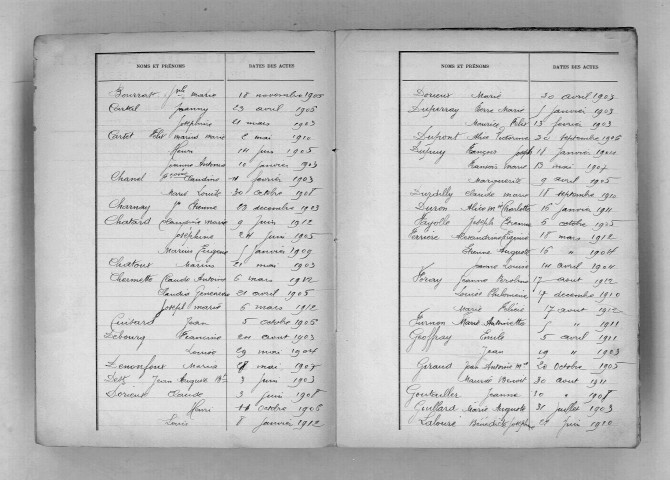 NOMS ET PRÉNOMS DATES DES ACTES
Bourrat Jph marie 18 novembre 1905
Cartal Joanny 23 avril 1905
Joséphine 21 mars 1903
Cartet Félix marius marie 2 mai 1910
Henri 14 juin 1905
Jeanne Antonia 10 janvier 1903
Chanel Claudine 11 février 1903
Marie Louise 30 octobre 1908
Charnay Jn Etienne 23 décembre 1903
Chatard marie 9 juin 1912
Joséphine 24 juin 1905
Marius Eugène 5 janvier 1909
Chatoux Marius 21 mai 1903
Chermette Claude Antoine 6 mars 1912
Claudia 21 avril 1905
Joseph marie 6 mars 1912
Cuitard Jean 5 octobre 1905
Debourg Francine 20 aout 1903
Louise 29 mai 1904
Marius 28 mai 1907
Jean Auguste 3 juin 1903
Dorieux Claude 3 juin 1908
Henri 11 octobre 1906
Louis 8 janvier 1912
NOMS ET PRÉNOMS DATES DES ACTES
Dorieux Marie 20 avril 1903
Duperray Pierre Marie 5 janvier 1903
Maurice Félix 13 février 1903
Dupont Alice Victorine 20 septembre 1906
Dupuy François Joseph 18 janvier 1904
Francois marie 13 mai 1907
Marguerite 9 avril 1905
Claude marie 18 septembre 1910
Duron Alice Mse Charlotte 6 janvier 1911
Fayolle Joseph Etienne 5 octobre 1905
Ferrière Alexandrine Eugénie 18 mars 1912
Pierre Auguste 16 " 1904
Jeanne Louise 14 avril 1904
Foray Jeanne 17 aout 1912
Louise Philomène 17 décembre 1910
Marie Hélène 17 aout 1912
Furnon Marie Antoinette 5 " 1911
Geoffray Emile 5 avril 1911
Jean 19 " 1903
Giraud Jean Antoine Mie 20 octobre 1905
Benoit 30 aout 1911
Goutailler Jeanne 10 " 1908
Guillard Marie Auguste 31 juillet 1903
Bénédicte Joséphine 21 juin 1910